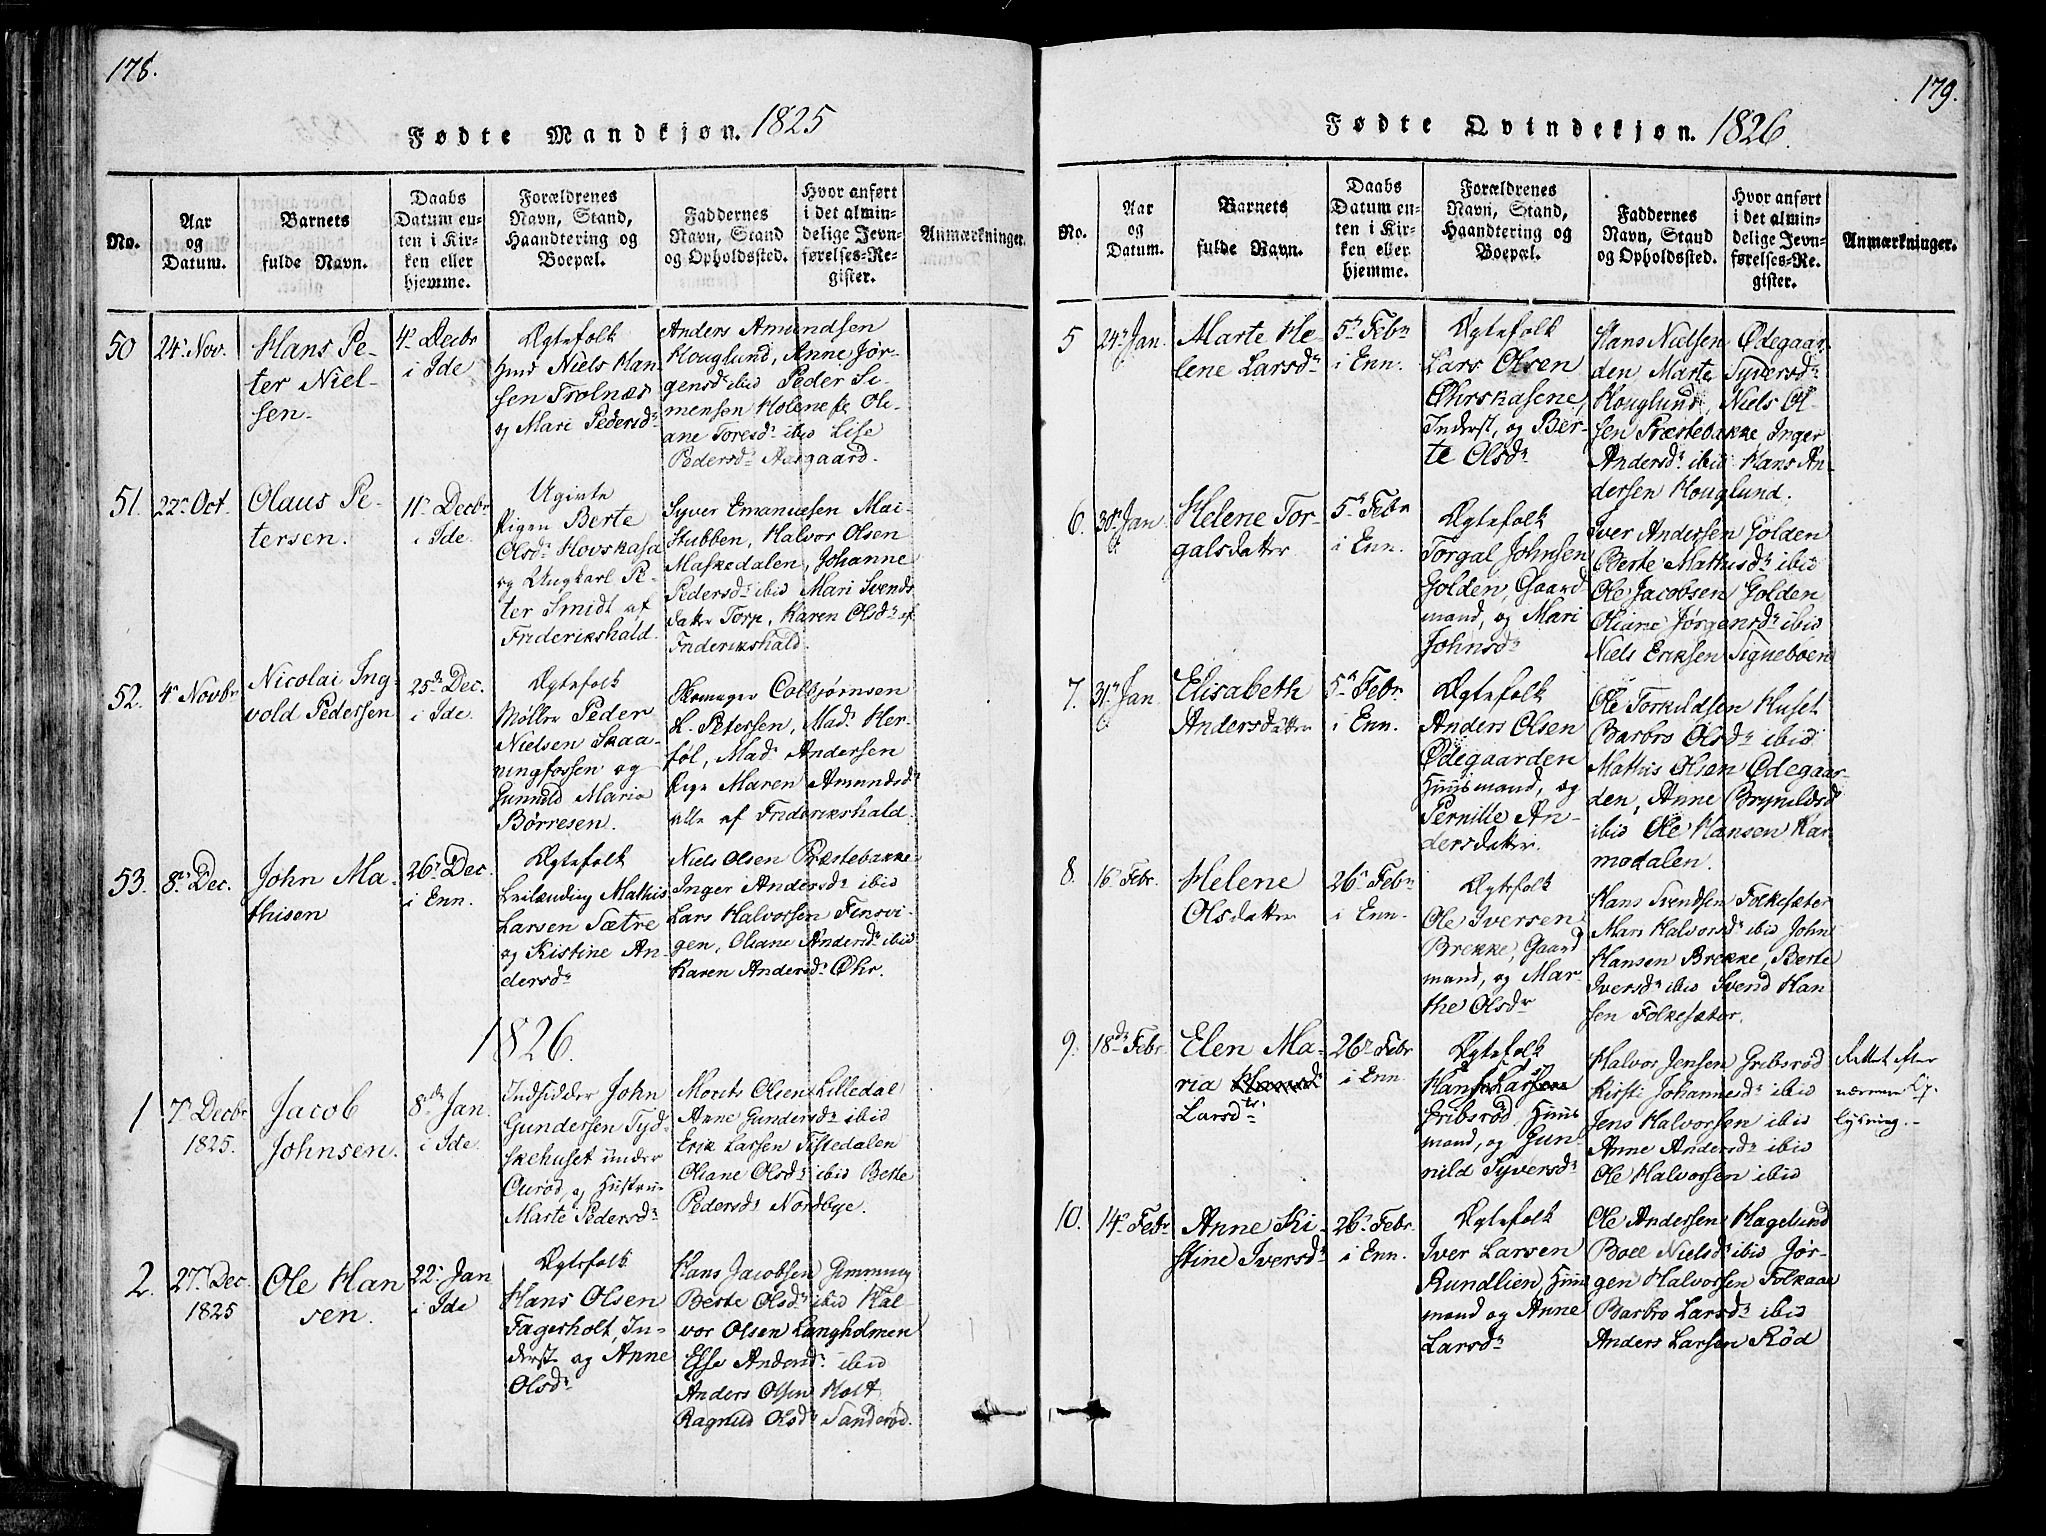 178.
Fødte Mandkjøn. 1825
No.
Aar
og
Datum.
Barnets
fulde Navn.
Daabs
Datum en-
ten i Kir-
ken eller
hjemme.
Forældrenes
Navn, Stand,
Haandtering og
Boepæl.
Faddernes
Navn, Stand
og Opholdssted.
Hvor anført
i det almin-
delige Jevn-
førelses-Re-
gister.
Anmærkninger.
50
24. Nov.
Hans Pe-
ter Niel-
sen.
4. Decbr
i Ide
Ægtefolk
Huus Niels Han-
sen Trolnæs
og Mari Pedersdr
Anders Amundsen
Houglund, Anne Jør-
gensdr ibid Peder Si-
mensen Holene, Oli-
ane Toresdr ibid Lise
Pedersdr Aasgaard.
51.
22. Oct.
Olaus Pe-
tersen.
11. Decbr
i Ide.
Ugivte
Pigen Berte
Olsdr Hovskasa
og Ungkarl Pe-
ter Smidt af
Friderikshald.
Syver Emanuesen Mai-
stubben, Halvor Olsen
Maskedalen, Johanne
Pedersdr ibid Mari Svends
datter Torp, Karen Olsdr af
Friderikshald.
52.
4. Novbr
Nicolai Ing-
vold Pedersen
25de Dec.
i Ide.
Ægtefolk
Møller Peder
Nielsen Skaa-
ningfossen og
Gunnild Maria
Børresen.
Skomager Colbjørnsen
L. Petersen, Mad. Her-
føl, Mad. Andersen
Pige Maren Amundsdr
alle af Friderikshald.
53.
8. Dec.
John Ma-
thisen
26. Dec.
i Enn.
Ægtefolk
Leilænding Mathis
Larsen Sætre
og Kistine An-
dersdr
Niels Olsen Præstebakke
Inger Andersdr ibid
Lars Halvorsen Finsvi-
gen, Oliane Andersdr ibid
Karen Andersdr Øhr.
1826.
1
7. Decbr
1825.
Jacob
Johnsen.
8de Jan.
i Ide.
Indsidder John
Gundersen Tyd-
skehuset under
Ourød, og Hustrue
Marte Pedersdr
Morits Olsen Lilledal
Anne Gundersdr ibid
Erik Larsen Tistedalen
Oliane Olsdr ibid Berte
Pedersdr Nordbye.
2.
27. Dec.
1825
Ole Han
sen.
22. Jan
i Ide
Ægtefolk
Hans Olsen
Fagerholt, In-
derst og Anne
Olsdr
Hans Jacobsen Gimming
Berte Olsdr ibid Hal-
vor Olsen Langholmen
Else Andersdr ibid
Anders Olsen Holt
Ragnild Olsdr Sanderød.
179.
Fødte Qvindekjøn. 1826.
No.
Aar
og
Datum.
Barnets
fulde Navn.
Daabs
Datum en-
ten i Kir-
ken eller
hjemme.
Forældrenes
Navn, Stand,
Haandtering og
Boepæl.
Faddernes
Navn, Stand
og Opholdssted.
Hvor anført
i det almin-
delige Jevn-
førelses-Re-
gister.
Anmærkninger.
5
24. Jan.
Marte He-
lene Larsdr
5. Febr
i Enn.
Ægtefolk
Lars Olsen
Øhrskasene,
Inderst, og Ber-
te Olsdr
Hans Nielsen Ødegaar-
den Marte Syversdr
Houglund, Niels Ol-
sen Præstebakke, Inger
Andersdr ibid Hans An-
dersen Houglund.
6.
30. Jan
Helene Tor-
galsdatter
5. Febr
i Enn.
Ægtefolk
Torgal Johnsen
Golden, Gaard
mand, og Mari
Johnsdr
Iver Andersen Golden
Berte Mathisdr ibid
Ole Jacobsen Golden
Oliane Jørgensdr ibid
Niels Eriksen Signeboen
7.
31. Jan
Elisabeth
Andersdatter
5. Febr.
i Enn.
Ægtefolk
Anders Olsen
Ødegaarden
Huusmand, og
Pernille An-
dersdatter.
Ole Torkildsen Huset
Barbro Olsdr ibid
Mathis Olsen Ødegaar-
den, Anne Brynildsd
ibid Ole Hansen Kar-
modalen.
8.
16. Febr.
Helene
Olsdatter
26. Febr
i Enn.
Ægtefolk
Ole Iversen
Brekke, Gaard
mand, og Mar-
the Olsdr
Hans Svendsen Folkesæter
Mari Halvorsdr ibid John
Hansen Brekke, Berte
Iversdr ibid Svend Han
sen Folkesæter.
9.
18de Febr
Elen Ma-
ria Hansdr
Larsdtr.
26. Febr
i Enn.
Ægtefolk
Hans Larsen
Gribsrød Huus
mand, og Gun-
nild Syversdr
Halvor Jensen Gribsrød
Kirsti Johannesdr ibid
Jens Halvorsen ibid
Anne Andersdr ibid
Ole Halvorsen ibid
Rettet efter
nærmere Op-
lysning.-
10.
14. Febr
Anne Ki-
stine Iversdr
26. Febr.
i Enn.
Ægtefolk
Iver Larsen
Rundlien, Huus
mand og Anne
Larsdr
Ole Andersen Hagelund
Boel Nielsdr ibid Jør-
gen Halvorsen Folkaae
Barbro Larsdr ibid
Anders Larsen Rød